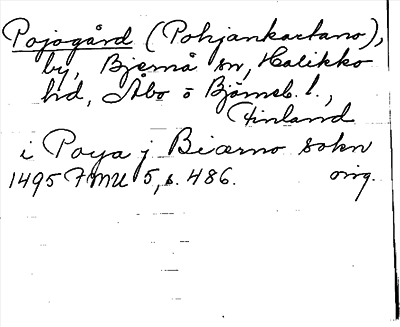 Pojogård (Pohjankartano),
by, Bjernå sn, Halikko
hd, Åbo o Björneb. l.,
Finland
i Poya j Biærno sokn
1495 FMU 5, s. 486. orig.